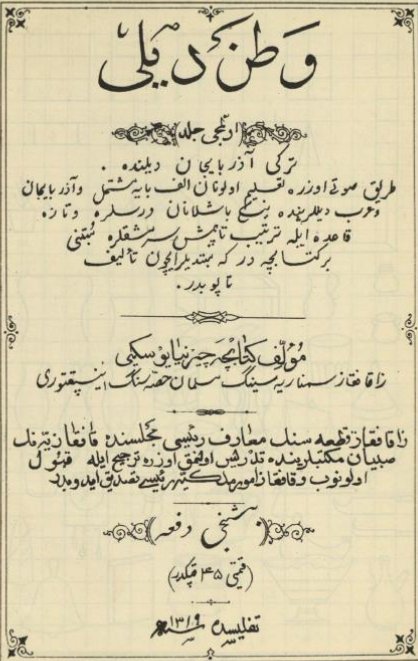 وطن دیلی
اونجی جلد
ترکی آذربایجان دیلنده .
طریق صوتی اوزره تعلیم اولونان الف بایه مشتمل و آذربایجان
و عرب دیللرینده یینگی باشلانان درسلره و تازه
قاعده ایله ترتیب تاپمش سرمشقلره مبتنی
بر کتابچه در که مبتدیلر ایچون تألیف
تاپوبدر.
مؤلف کتابچه چیرنیایوسکی
زاقافقاز سمناریه سینگ مسلمان حصه سنگ اینسپقتوری
زاقافقاز قطعه سنگ معارف رئیسی مجلسنده قافقاز یرنگ
صبیان مکتبلرینده تدریس اولنمق اوزره ترجیح ایله قبول
اولونوب و قافقاز امورمدنیه رئیسی تصدیق ایدوبدر
بشنجی دفعه
(قیمتی ۴۵ قپکدر)
تفلیسده ۱۳۱۹ سنه